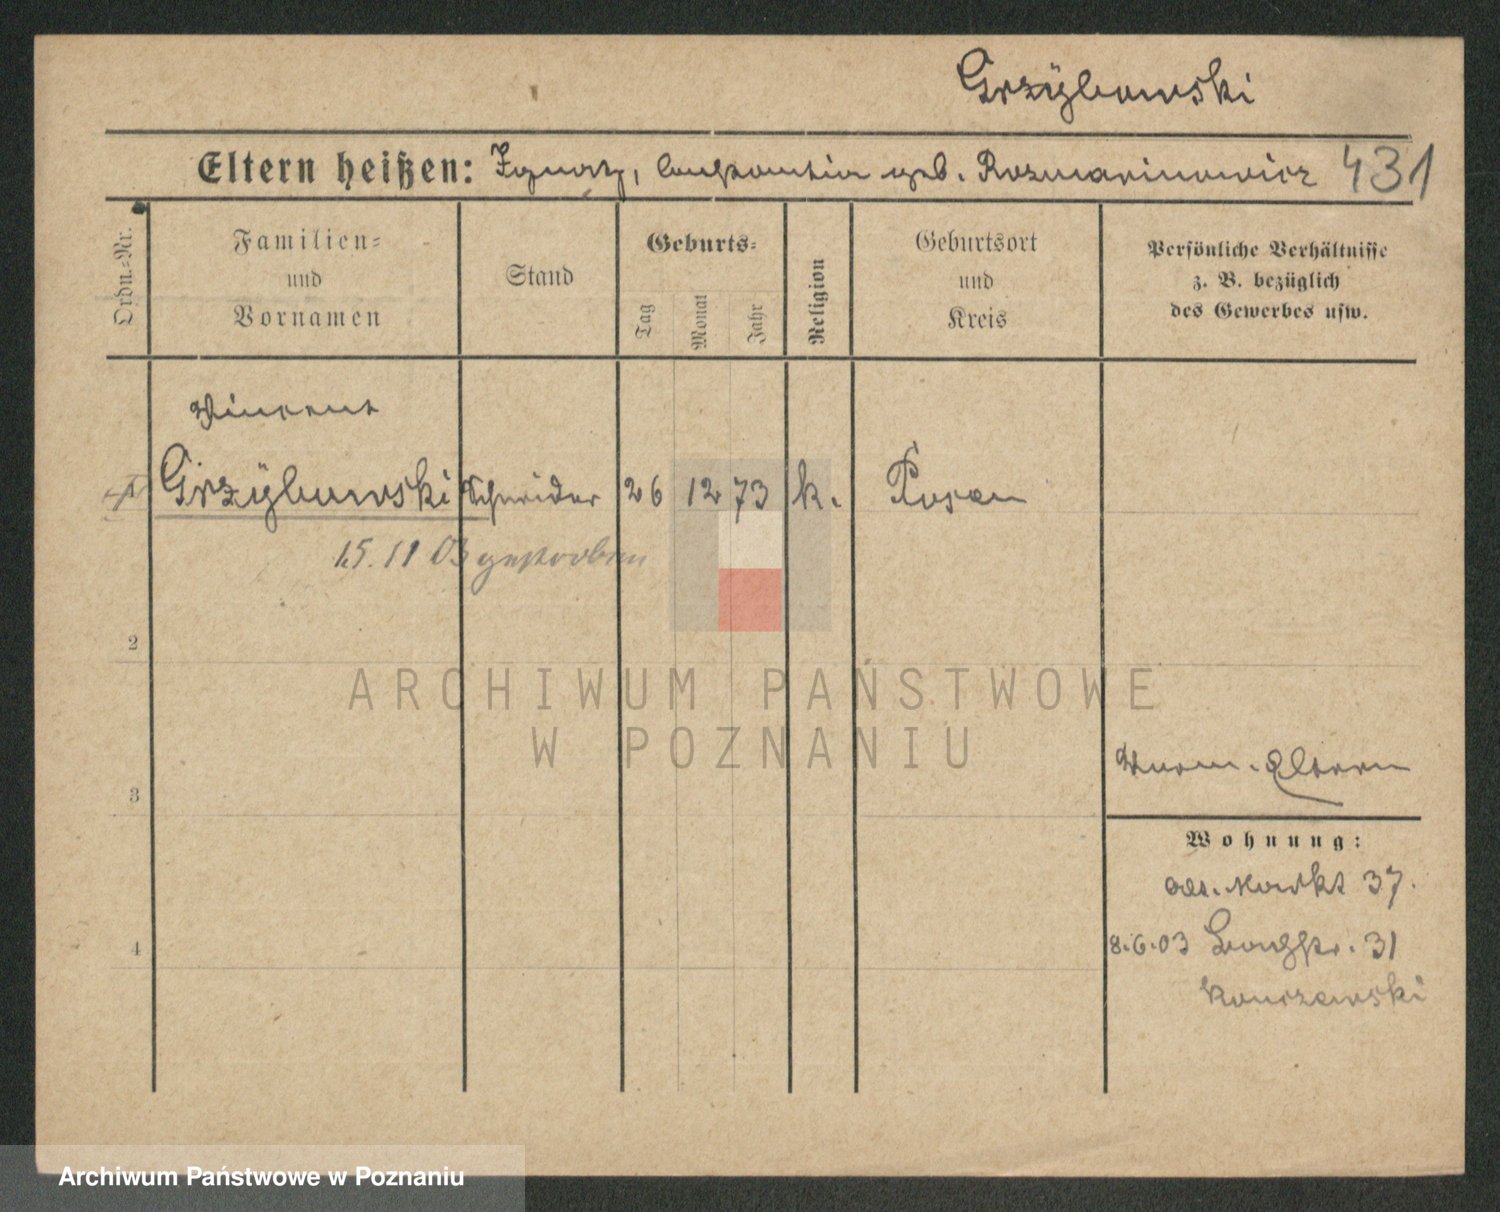 Grzÿbowski
Eltern heißen: Ignatz, Constantia geb. Rozmarinowicz 431
Ordn.-Nr.
Familien-
und
Vornamen
Stand
Geburts-
Tag
Monat
Jahr
Religion
Geburtsort
und
Kreis
Persönliche Verhältnisse
z. B. bezüglich
des Gewerbes usw.
Vincent
1 Grzÿbowski Schneider 26 12 73 k. Posen
15. 11 03 gestorben
2
ARCHIWUM PAŃSTWOWE
W POZNANIU
Eltern
3
Wohnung:
Alt. Markt 37.
4
8.6.03 Langstr. 31
Archiwum Państwowe w Poznaniu